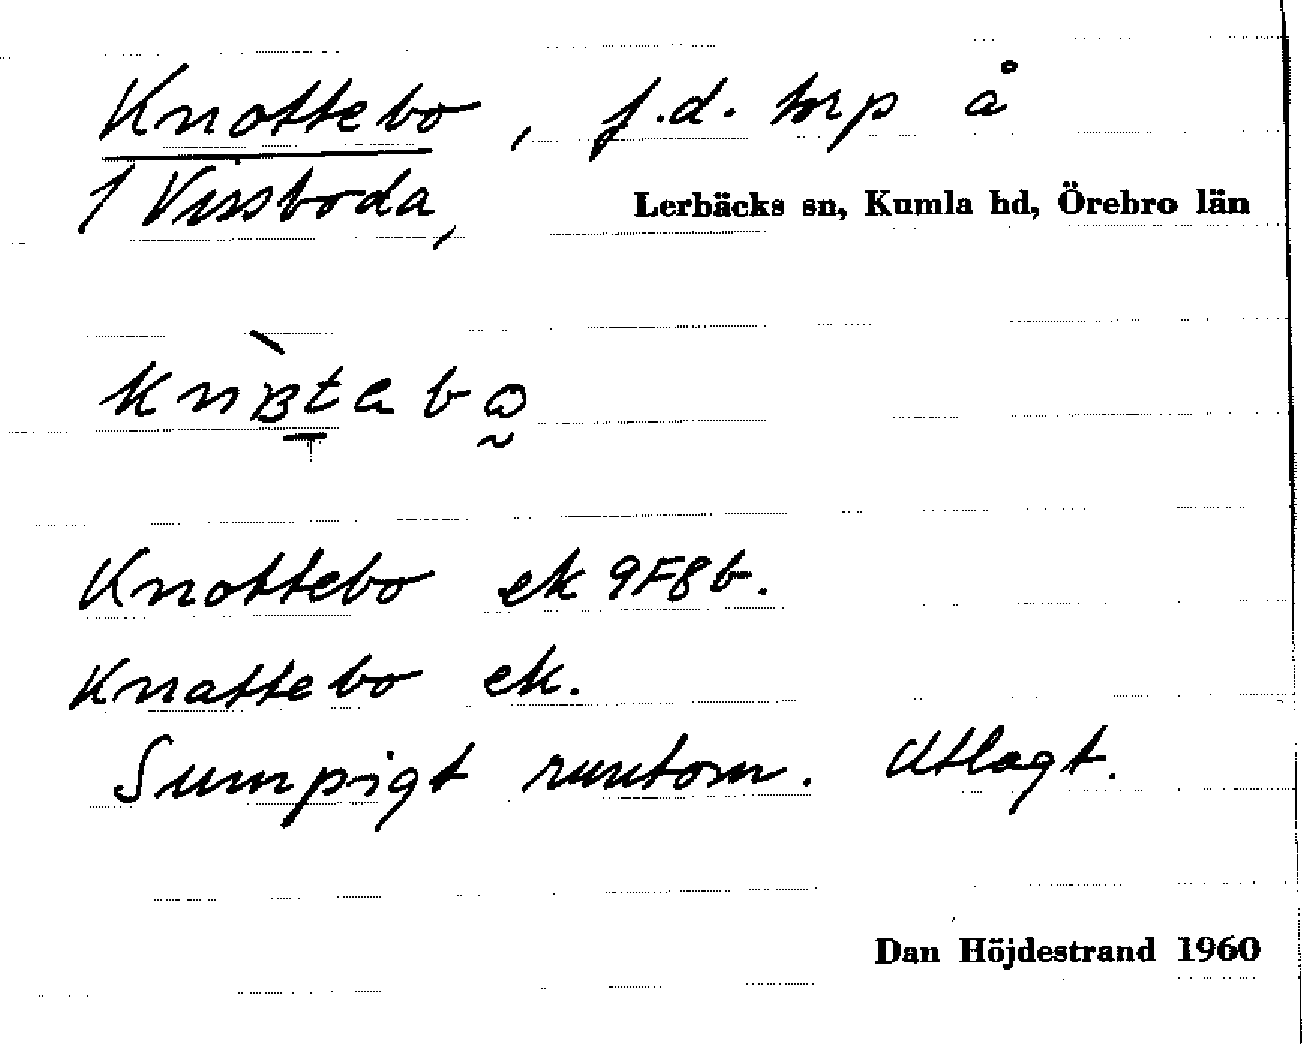 Knottebo, f.d. torp å
1 Vissboda, Lerbäcks sn, Kumla hd, Örebro län
Knottebo ek 9F8b.
Knattebo ek.
Sumpigt runtom. Utlagt.
Dan Höjdestrand 1960